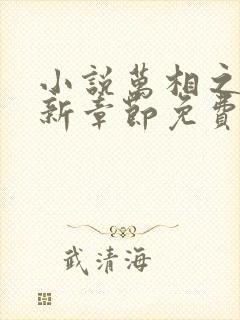 小說萬相之
新章節免費
武清海